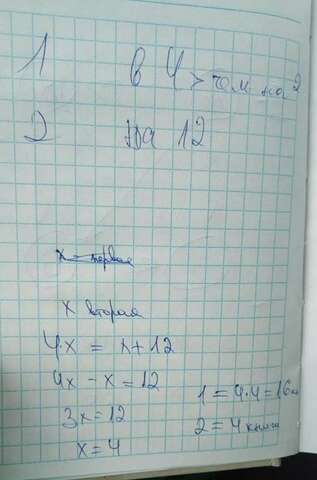 1 в 4 > чем на 2
2 на 12
x = первая
x вторая
4·x = x + 12
4x - x = 12
3x = 12
x = 4
1 = 4·4 = 16
2 = 4 книги